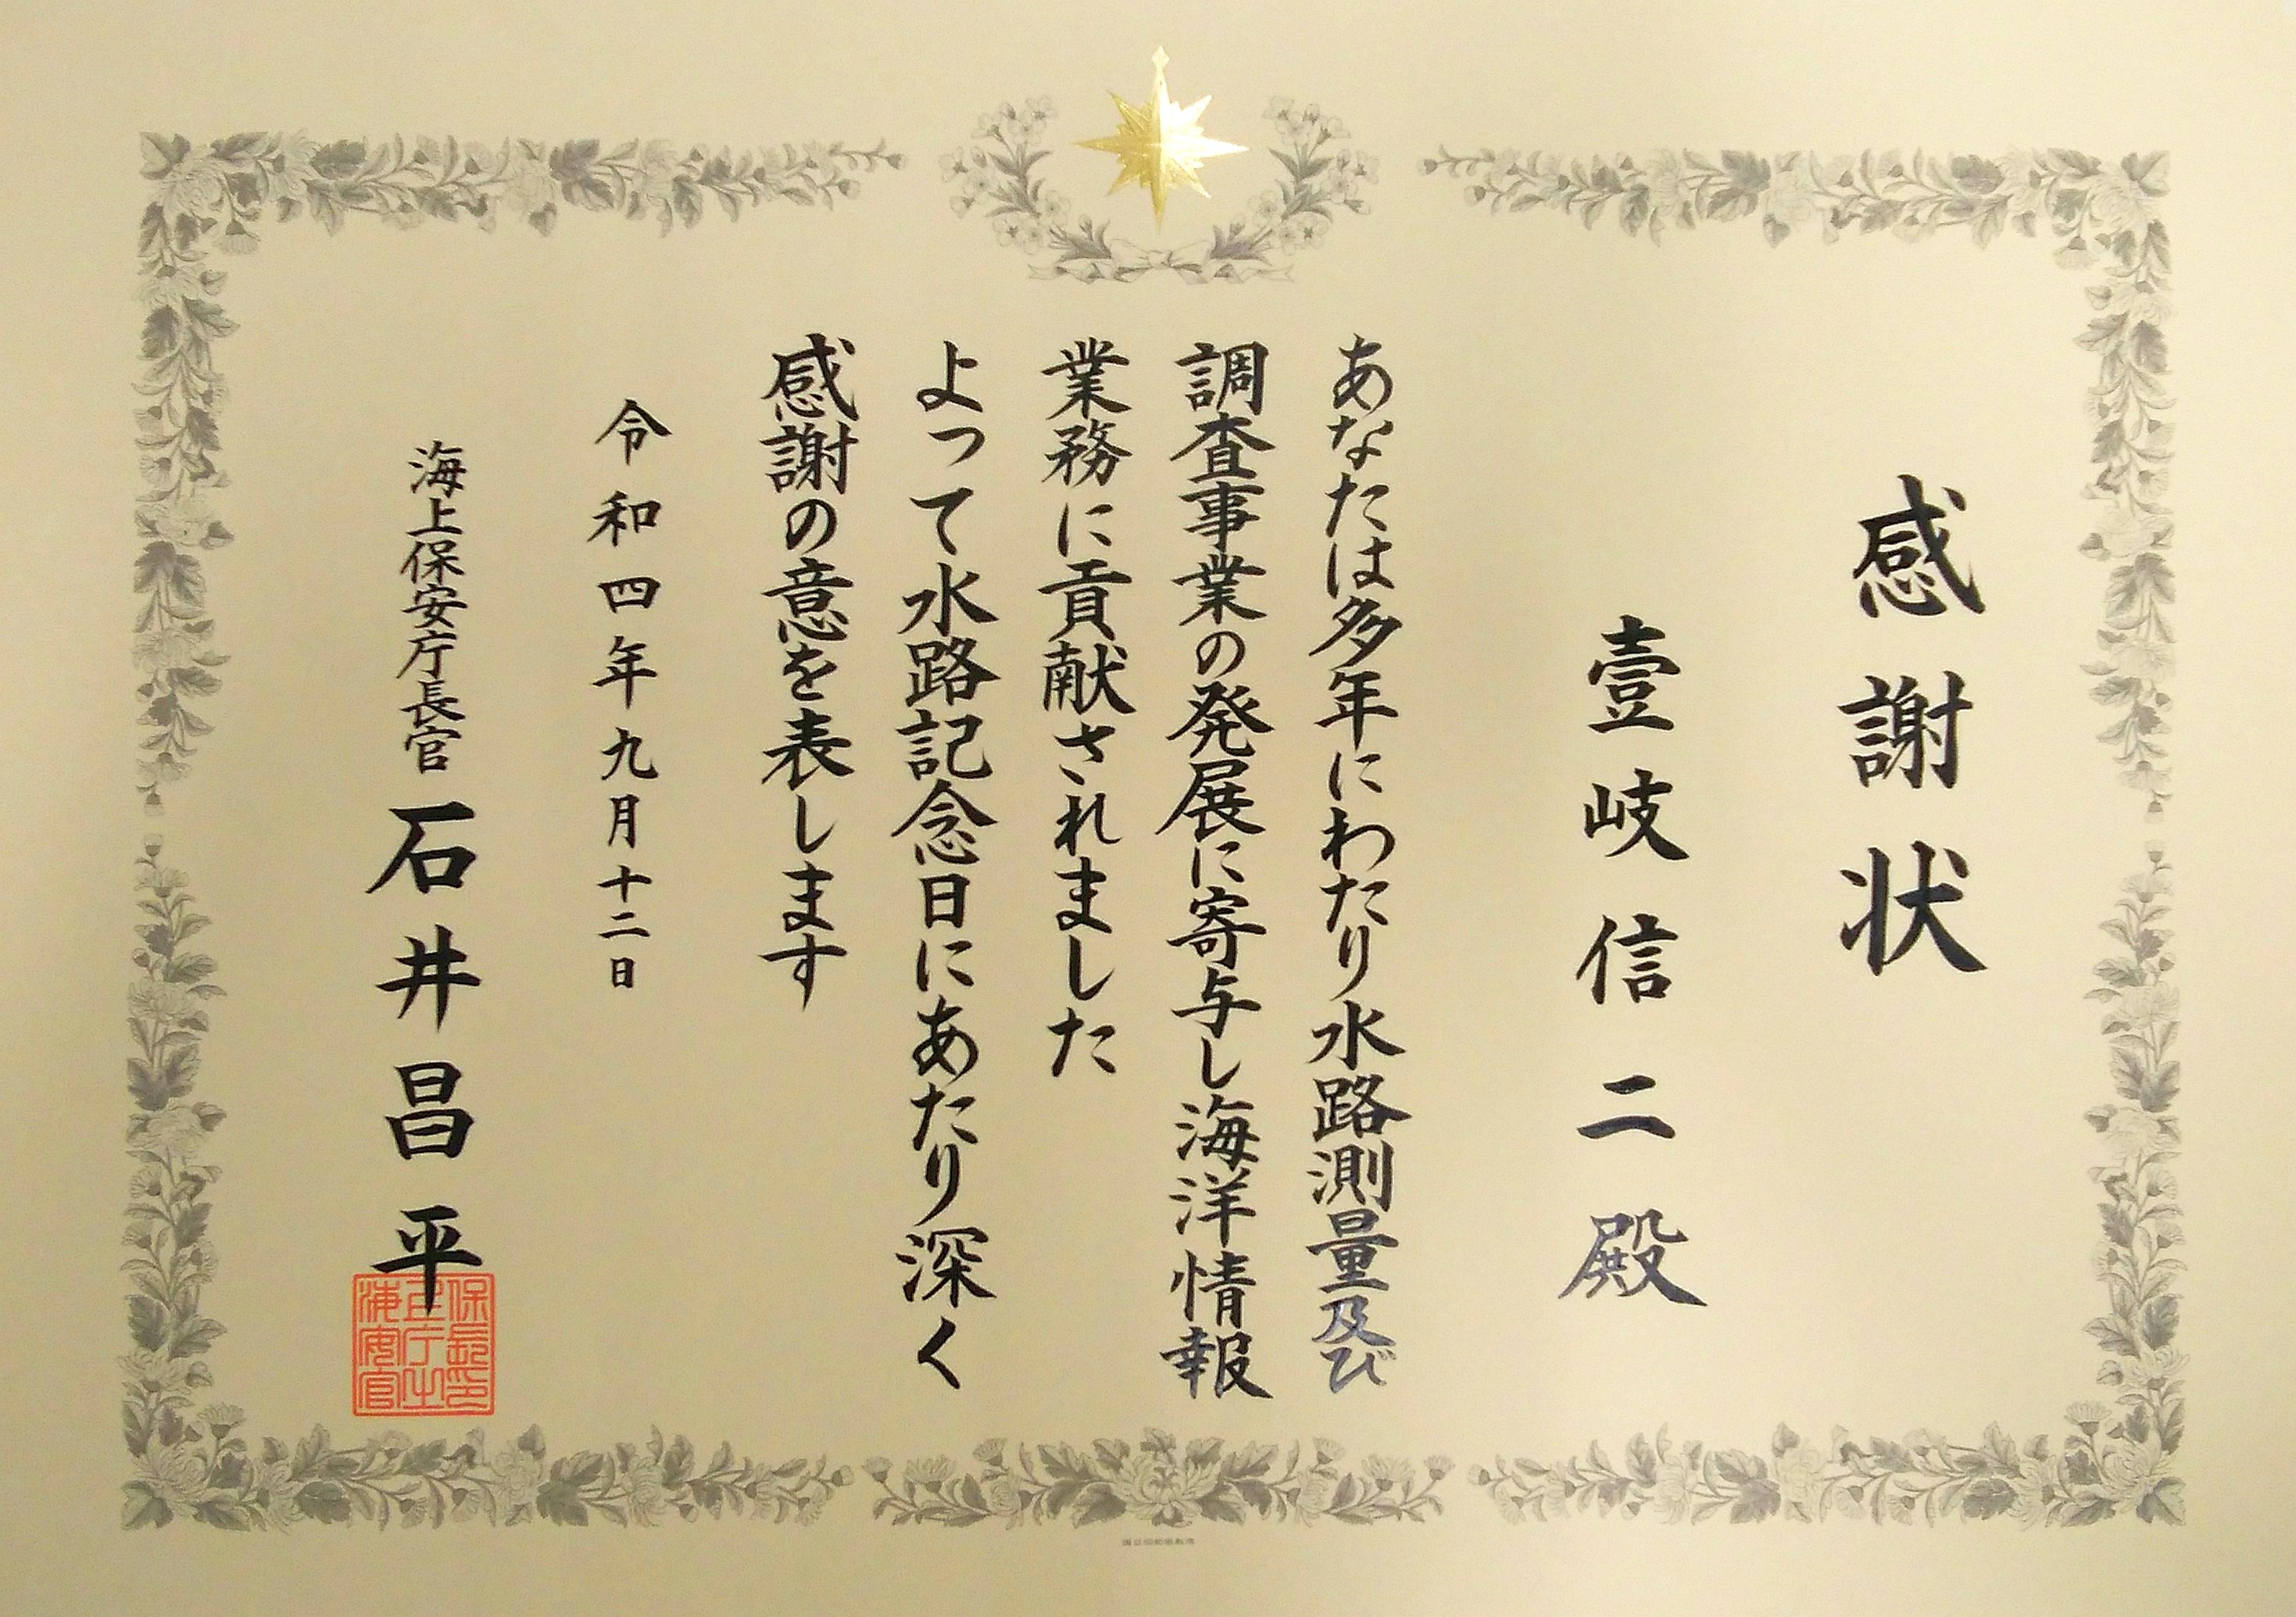 感謝状
壹岐信二殿
あなたは多年にわたり水路測量及び
調査事業の発展に寄与し海洋情報
業務に貢献されました
よって水路記念日にあたり深く
感謝の意を表します
令和四年九月十二日
海上保安庁長官 石井昌平